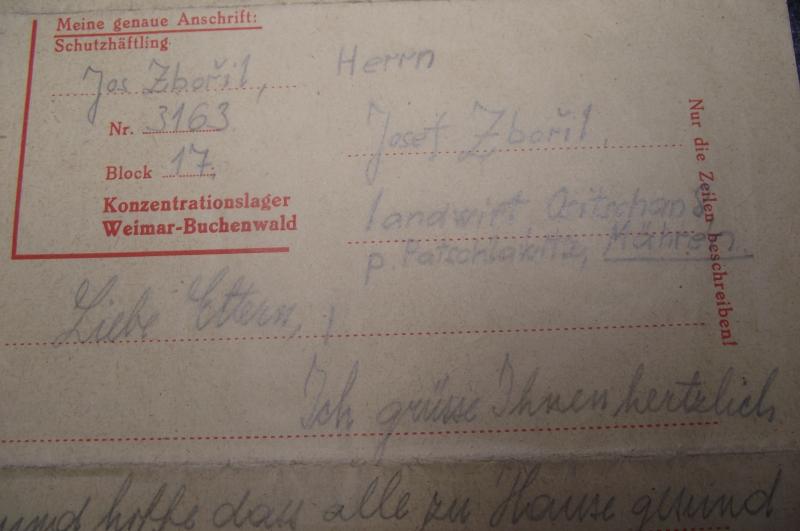 Meine genaue Anschrift:
Schutzhäftling
Jos Zbořil,
Nr. 3163
Block 17,
Konzentrationslager
Weimar-Buchenwald
Herrn
Josef Zbořil,
landwirt
p. Patschlawitz, Mähren.
Nur die Zeilen beschreiben!
Liebe Eltern,!
Ich grüsse Ihnen hertzlich
und hoffe dass alle zu Hause gesund